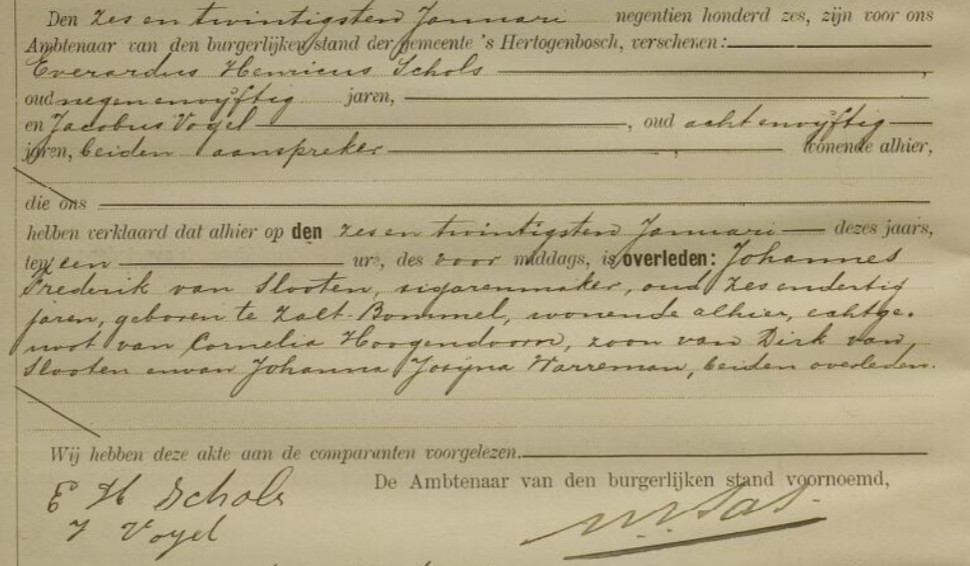 Den zes en twintigsten Januari negentien honderd zes, zijn voor ons
Ambtenaar van den burgerlijken stand der gemeente 's Hertogenbosch, verschenen:
Everardus Henricus Schols,
oud negen envijftig jaren,
en Jacobus Vogel, oud acht envijftig
jaren, beiden aanspreker, wonende alhier,
die ons
hebben verklaard dat alhier op den zes en twintigsten Januari dezes jaars,
ten een ure, des voor middags, is overleden: Johannes
Frederik van Slooten, sigarenmaker, oud zes endertig
jaren, geboren te Zalt-Bommel, wonende alhier, echtge-
noot van Cornelia Hoogendoorn, zoon van Dirk van
Slooten envan Johanna Josijna Warreman, beiden overleden.
Wij hebben deze akte aan de comparanten voorgelezen.
De Ambtenaar van den burgerlijken stand voornoemd,
E H Schols
J Vogel